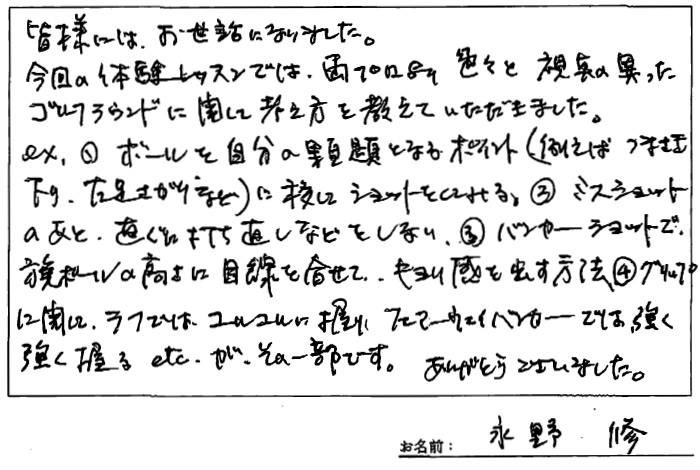 皆様には、お世話になりました。
今回の体験レッスンでは、両プロより 色々と 視点の異った
ゴルフラウンドに関して考え方を教えていただきました。
ex. ① ボールを自分の課題となるポイント(例えば つま先
下り、左足上がりなど)に移してショットをしてみる。② ミスショット
のあと、直ぐに打ち直しなどをしない。③ バンカーショットで、
旗ポールの高さに目線を合せて、キョリ感を出す方法④グリップ
に関して、ラフでは、ユルユルに握り、フェアーウェイバンカーでは、強く
強く握る etc. が、その一部です。 ありがとうございました。
お名前: 永野 修